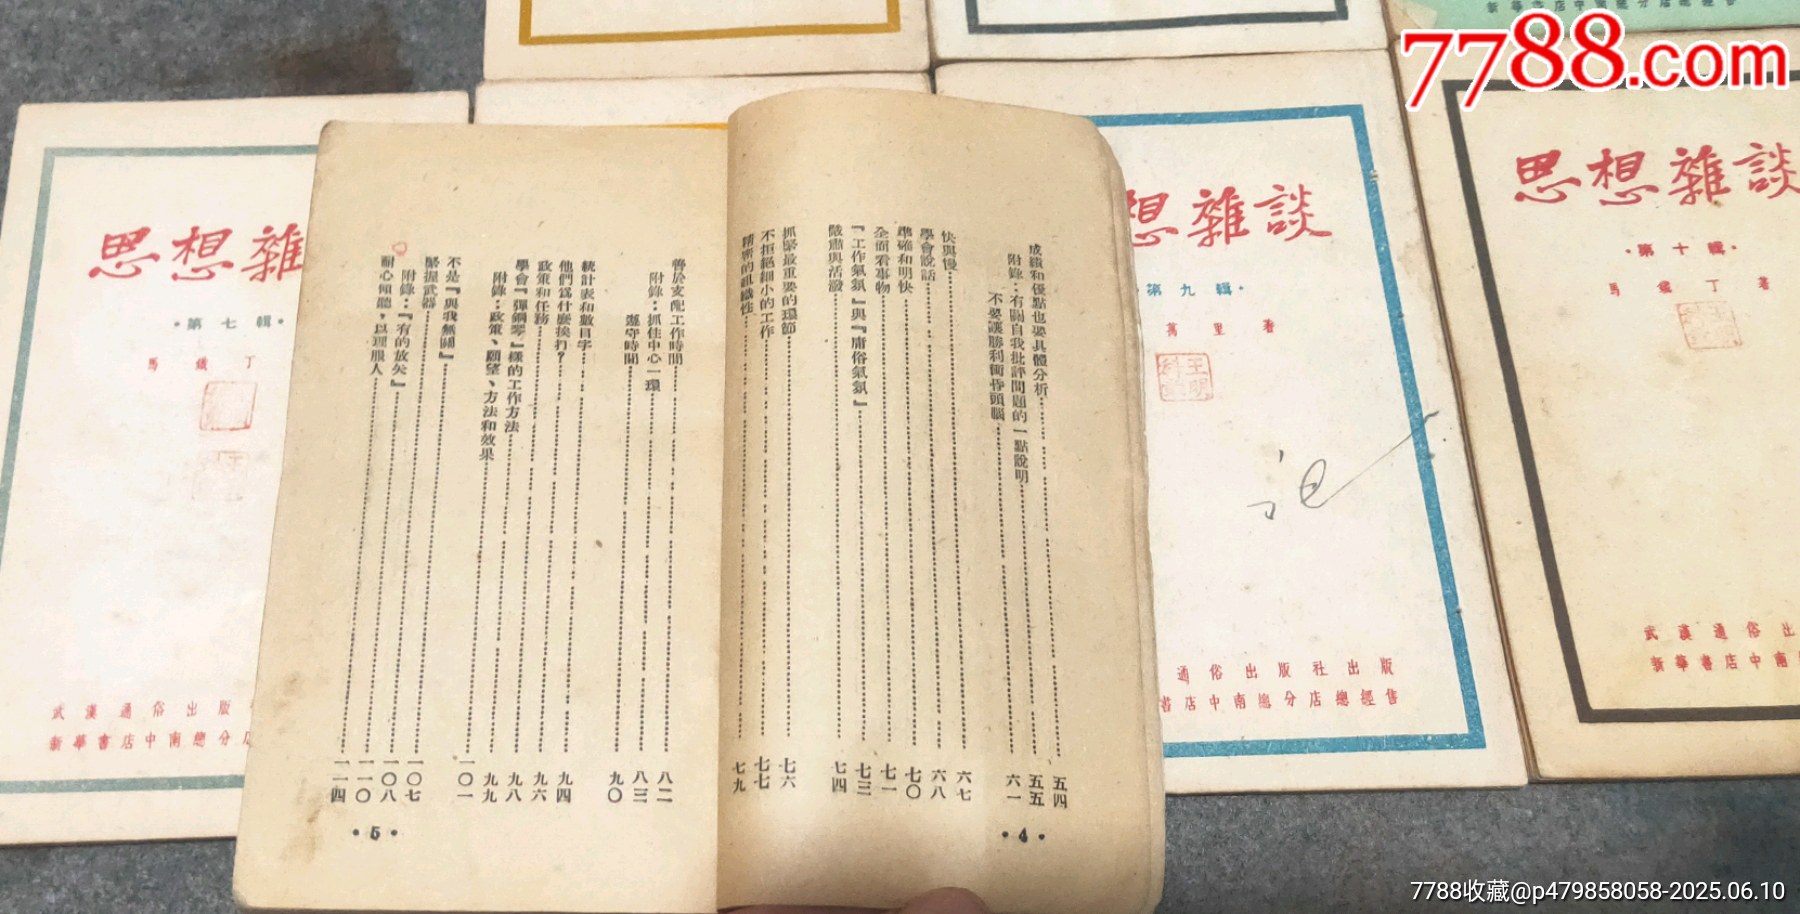 新華書店中南總分店總經售
7788.com
思想雜
·第七輯·
馬鐵丁
武漢通俗出版
新華書店中南總分店
成績和優點也要具體分析……五四
附錄：有關自我批評問題的一點說明……五五
不要讓勝利衝昏頭腦……六一
快與慢……六七
學會說話……六八
準確和明快……七〇
全面看事物……七一
『工作氣氛』與『庸俗氣氛』……七三
嚴肅與活潑……七四
抓緊最重要的環節……七六
不拒絕細小的工作……七七
精密的組織性……七九
·4·
善於支配工作時間……八二
附錄：抓住中心一環……八三
遵守時間……九〇
統計表和數目字……九四
他們爲什麼挨打？……九六
政策和任務……九八
學會『彈鋼琴』樣的工作方法……九九
附錄：政策、願望、方法和效果……一〇一
不是『與我無關』……一〇七
緊握武器……一〇八
附錄：『有的放矢』……一一〇
耐心傾聽，以理服人……一一四
·5·
想雜談
第九輯·
萬里著
王明
通俗出版社出版
書店中南總分店總經售
思想雜談
·第十輯·
馬鐵丁著
武漢通俗出
新華書店中南
7788收藏@p479858058-2025.06.10